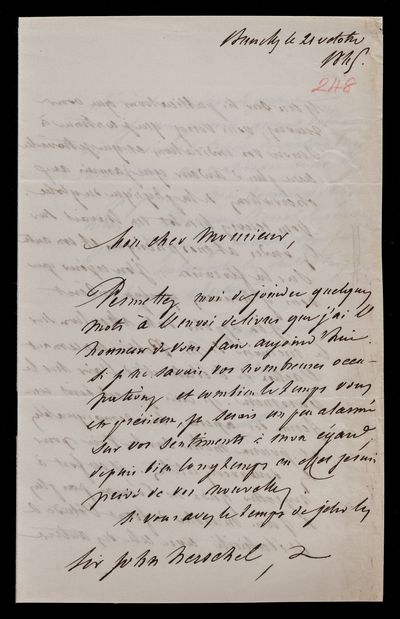 Bruxelles le 21 octobre
1845.
248
Mon cher Monsieur,
Permettez moi de joindre quelques
mots à l'envoi de livres que j'ai l'
honneur de vous faire aujourd'hui.
Si je ne savais vos nombreuses occu-
pations et combien le temps vous
est précieux, je serais un peu alarmé
sur vos sentiments à mon égard,
depuis bien longtemps en effet je suis
privé de vos nouvelles.
Si vous avez le temps de jeter les
Sir John Herschel, &